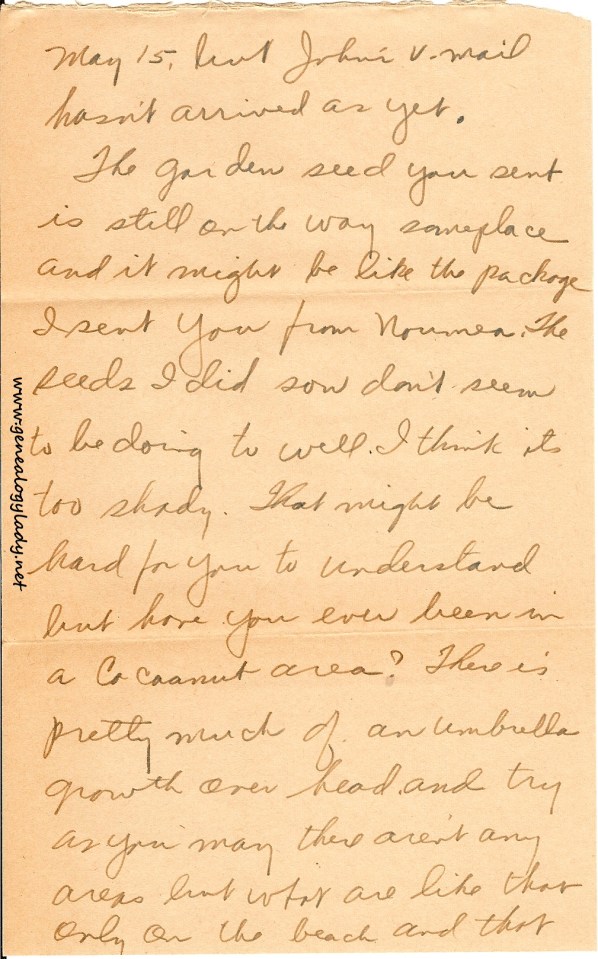 May 15, but John's V-mail
hasn't arrived as yet.
The garden seed you sent
is still on the way someplace
and it might be like the package
I sent you from Noumea. The
seeds I did sow don't seem
to be doing to well. I think its
too shady. That might be
hard for you to understand
but have you ever been in
a Cocoanut area? There is
pretty much of an umbrella
growth over head and try
as you may there aren't any
areas but what are like that
only on the beach and that
www.genealogylady.net